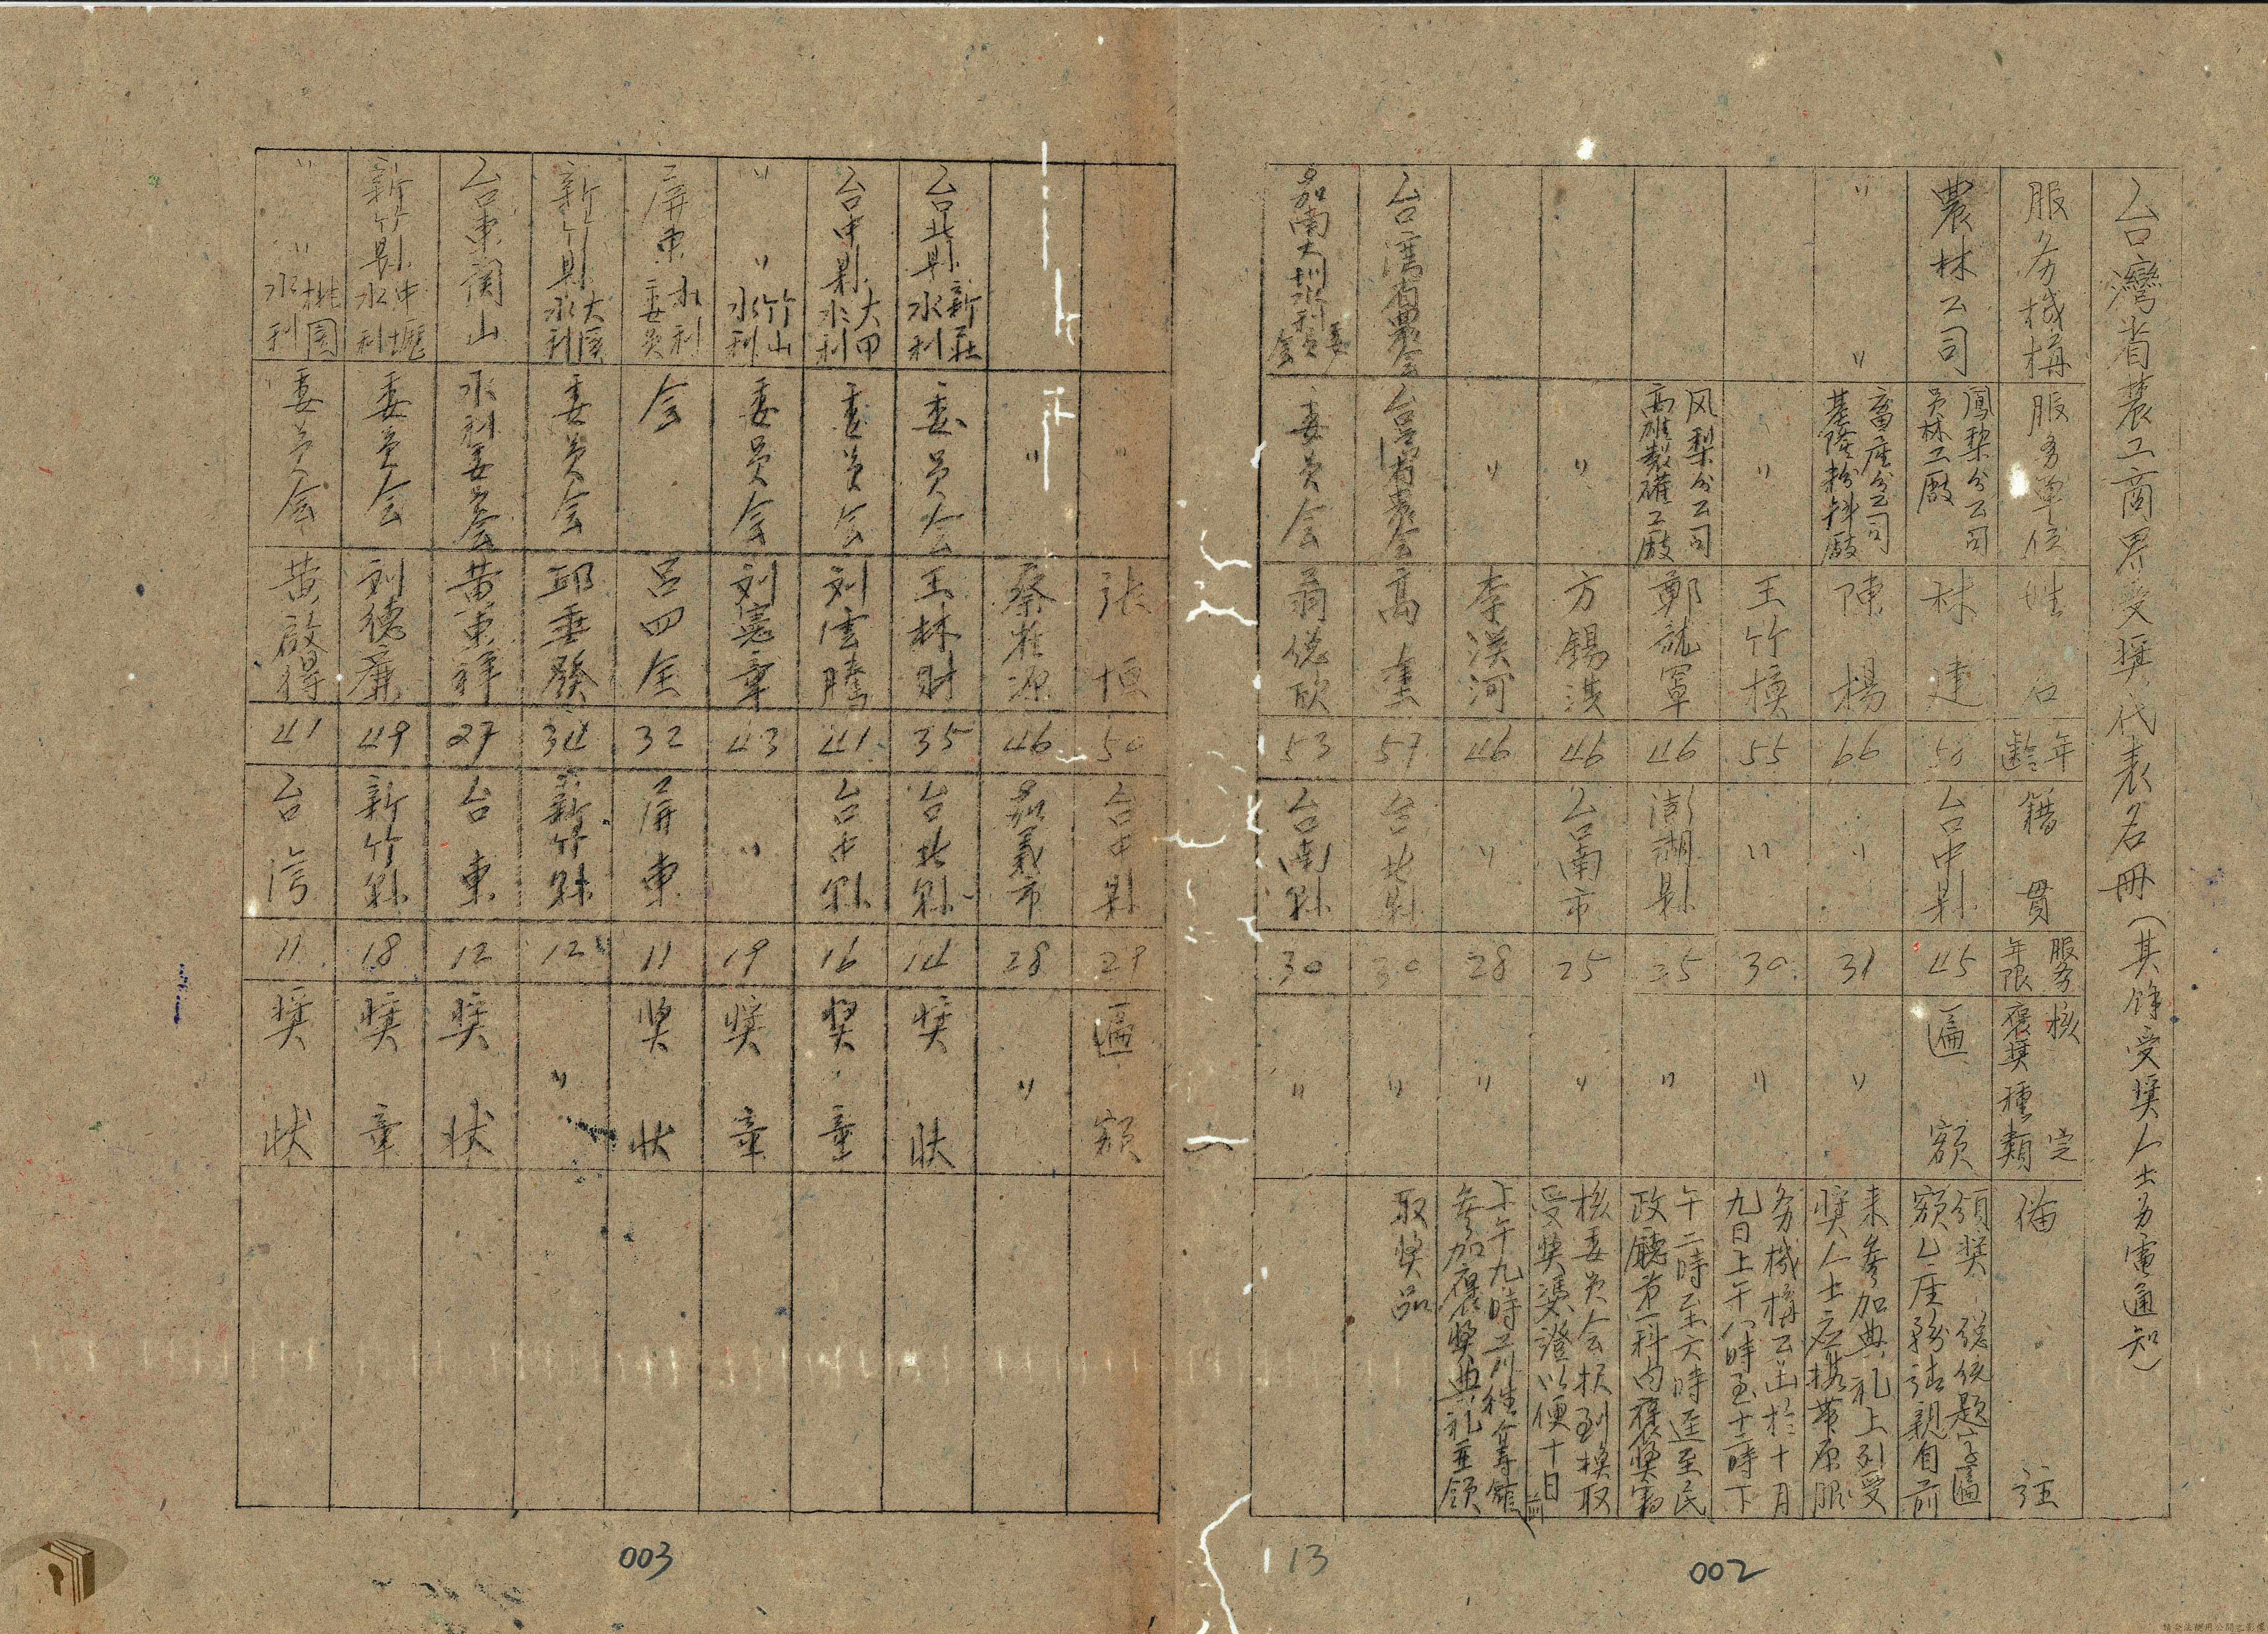 台灣省農工商界受奬代表名冊(其餘受奬人士另電通知)
服务機構 服务單位 姓名 年齡 籍貫 服务年限 核定褒奬種類 備註
農林公司 鳳梨分公司員林工廠 林建 50 台中縣 45 匾額
〃 〃 畜產分公司基隆粉料廠 陳楊 66 〃 31 〃
〃 王竹 55 〃 30 〃
风梨分公司高雄製罐工廠 鄭 46 澎湖縣 25 〃
〃 方錫淇 46 台南市 25 〃
〃 李漢河 46 〃 28 〃
台湾省農会 台湾省農会 高 57 台北縣 30 〃
嘉南大圳水利委員会 委員会 翁 欣 53 台南縣 30 〃
領奬 總統題字匾
額乙座務請親自前
来參加典礼上列受
奬人士应携带原服
务機構公函於十月
九日上午八時至十二時下
午二時至六時逕至民
政廳第一科內褒奬審
核委員会報到換取
受奬憑證以便十日
上午九時前徃
參加褒奬典礼並領
取奬品
13
002
張恒 50 台中縣 29 匾額
〃 蔡 源 46 嘉義市 28 〃
台北縣新莊水利 委員会 王林財 35 台北縣 14 奬狀
台中縣大甲水利 委員会 刘雲騰 41 台中縣 16 奬章
〃 〃 竹山水利 委員会 刘憲章 43 〃 19 奬章
屏東水利委員 会 呂四全 32 屏東 11 奬狀
新竹縣大溪水利 委員会 邱垂發 34 新竹縣 12 〃
台東関山 水利委員会 黄東祥 27 台東 12 奬狀
新竹縣中壢水利 委員会 刘德廉 49 新竹縣 18 奬章
〃 〃 桃園水利 委員会 黄啟得 41 台湾 11 奬狀
003